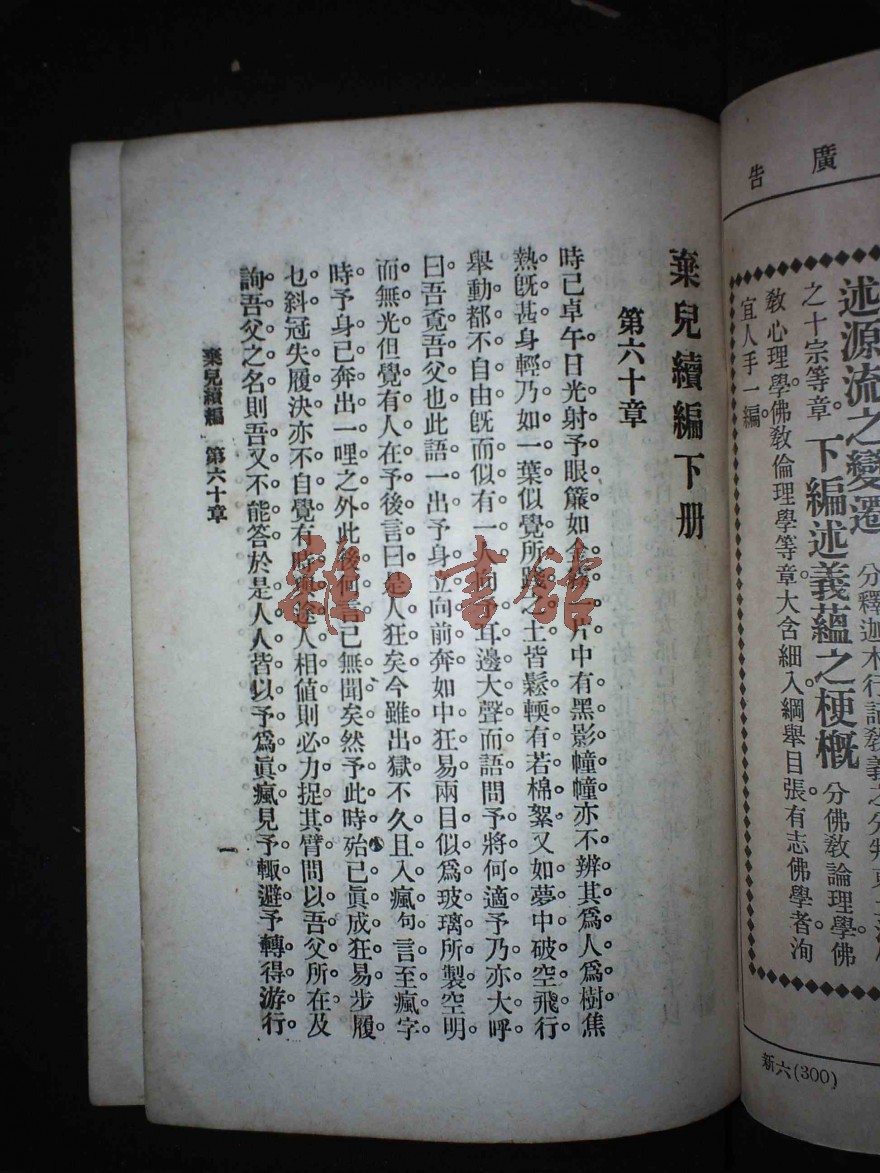 廣告
述源流之變遷 分釋迦木行記教義之分判東
之十宗等章。下編述義蘊之梗概 分佛教論理學佛
教心理學佛教倫理學等章大含細入綱舉目張有志佛學者洵
宜人手一編。
新六(300)
棄兒續編下册
第六十章
時已卓午日光射予眼簾如金 片中有黑影幢幢亦不辨其爲人爲樹焦
熱旣甚身輕乃如一葉似覺所踐之土皆鬆輭有若棉絮又如夢中破空飛行
舉動都不自由旣而似有一人向予耳邊大聲而語問予將何適予乃亦大呼
曰吾覓吾父也此語一出予身立向前奔如中狂易兩目似爲玻璃所製空明
而無光但覺有人在予後言曰是人狂矣今雖出獄不久且入瘋句言至瘋字
時予身已奔出一哩之外此後何言已無聞矣然予此時殆已眞成狂易步履
乜斜冠失履決亦不自覺有時與途人相値則必力捉其臂問以吾父所在及
詢吾父之名則吾又不能答於是人人皆以予爲眞瘋見予輒避予轉得游行
棄兒續編 第六十章
一
雜·書館